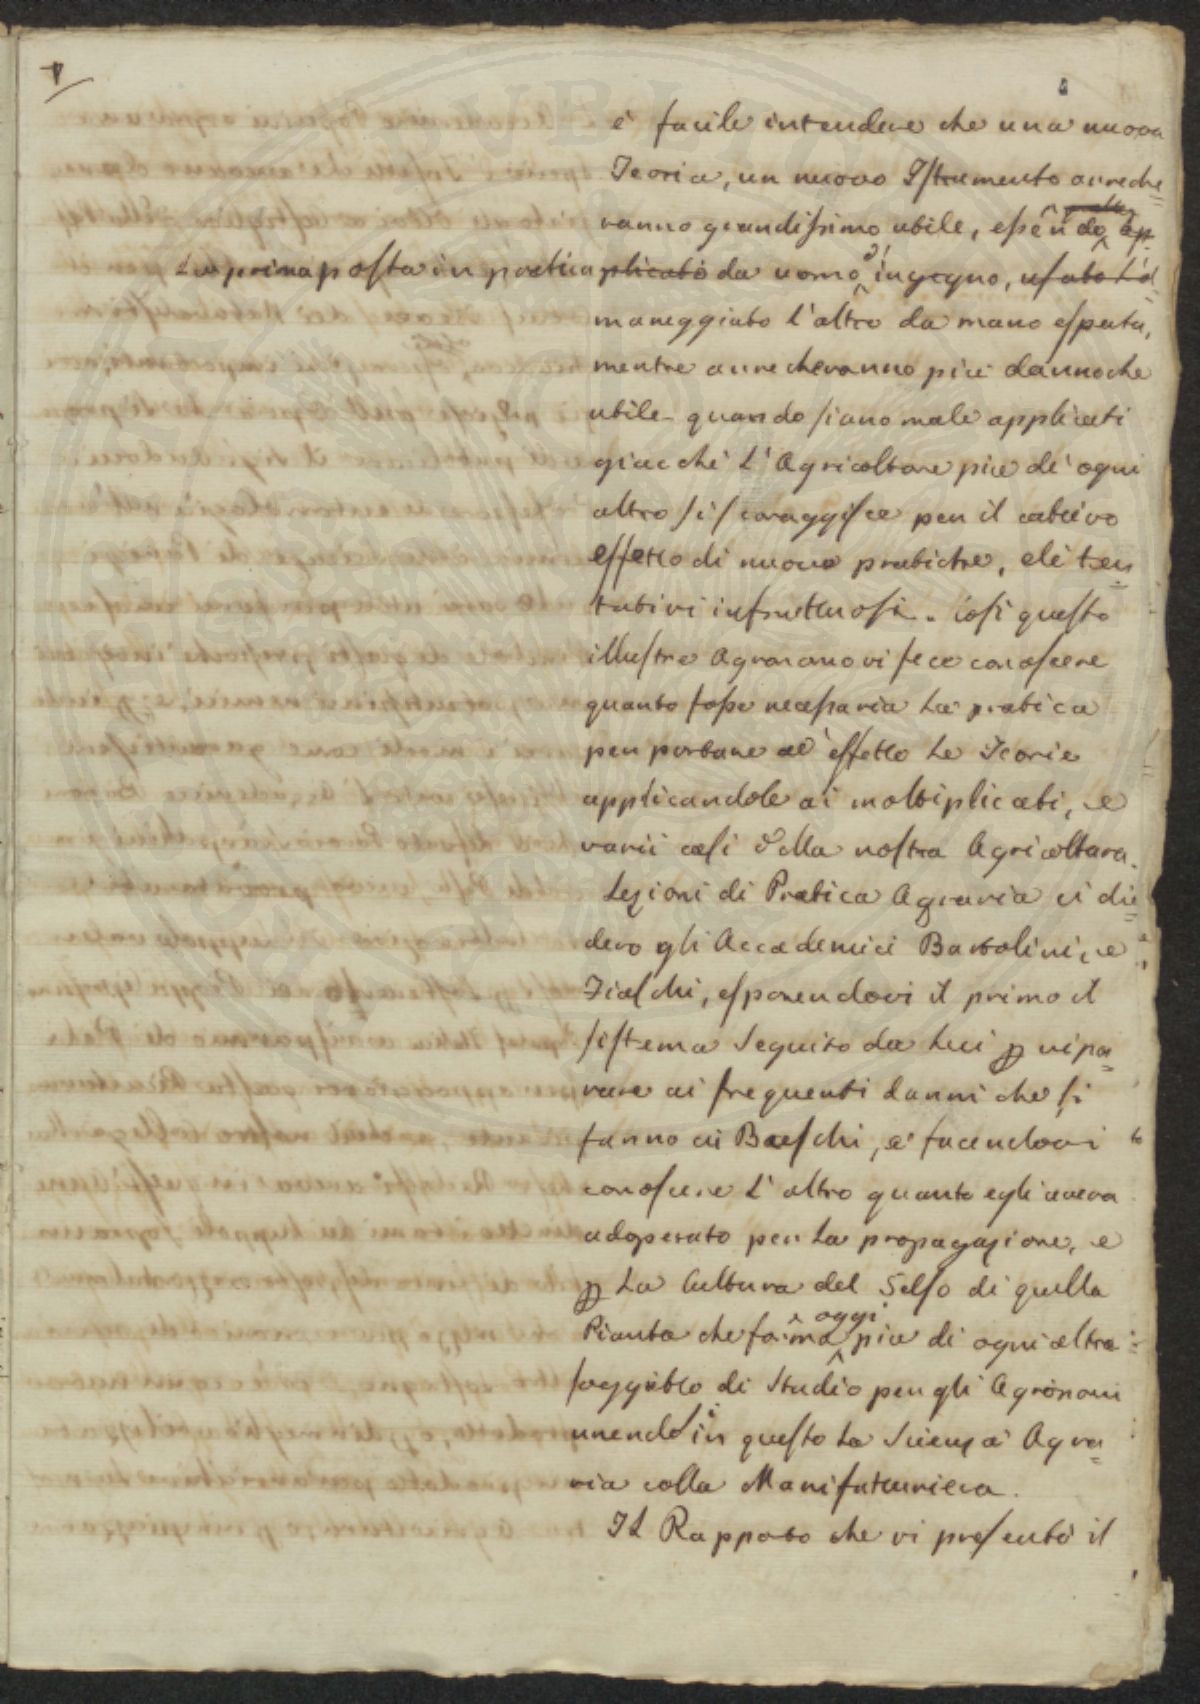 è facile intendere che una nuova
Teoria, un nuovo Istrumento arreche=
ranno grandissimo utile, essendo ap=
La prima posta in pratica plicato da uomo d'ingegno, usato l'al=
maneggiato l'altro da mano esperta,
mentre arrecheranno più danno che
utile quando siano male applicati
giacchè l'Agricoltore più di ogni
altro si scoraggisce per il cattivo
effetto di nuove pratiche, e di ten=
tativi infruttuosi. Così questo
illustre Agronomo vi fece conoscere
quanto fosse necessaria la pratica
per portare ad effetto le Teorie
applicandole ai moltiplicati, e
varii casi della nostra Agricoltura.
Lezioni di Pratica Agraria vi die=
dero gli Accademici Bartolini, e
Fiaschi, esponendovi il primo il
sistema seguito da lui p ripa=
rare ai frequenti danni che si
fanno ai Boschi, e facendovi
conoscere l'altro quanto egli aveva
adoperato per la propagazione, e
p la Cultura del Gelso di quella
Pianta che forma oggi più di ogni altra
soggetto di Studio per gli Agronomi
unendosi in questo la Scienza Agra=
ria colla Manifatturiera.
Il Rapporto che vi presentò il